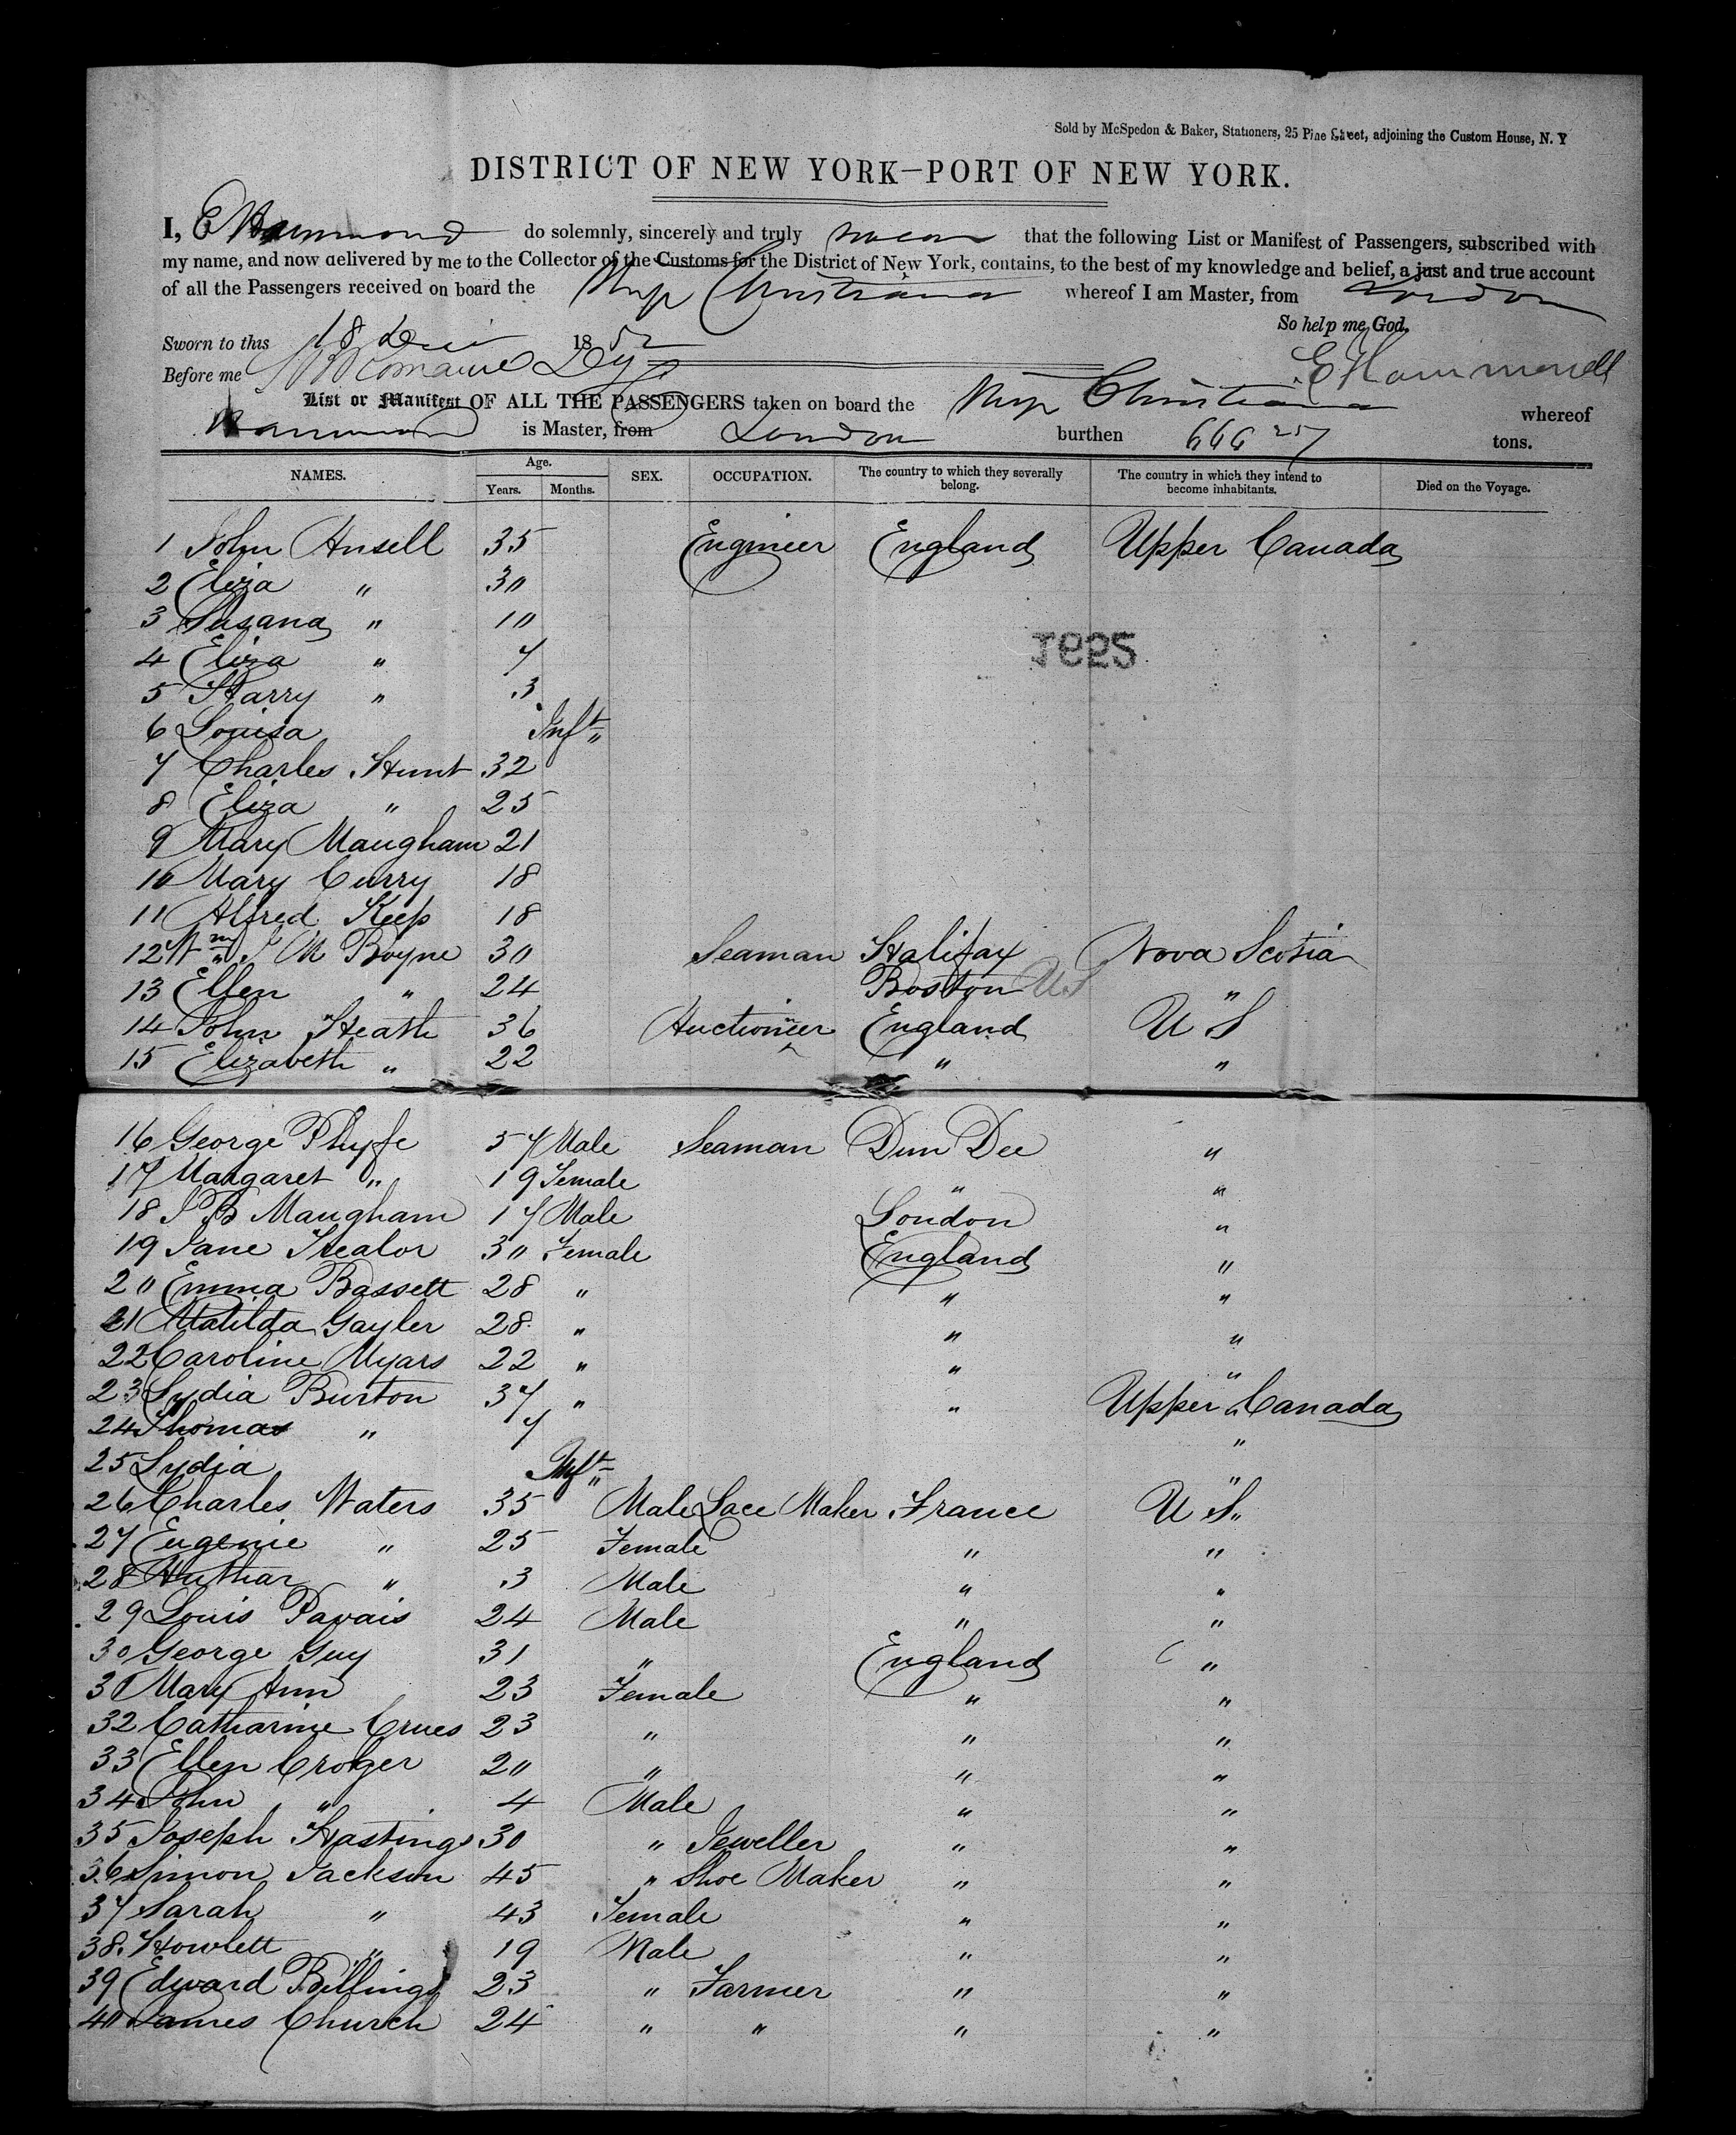 Sold by McSpedon & Baker, Stationers, 25 Pine Street, adjoining the Custom House, N. Y
DISTRICT OF NEW YORK—PORT OF NEW YORK.
I, E Hammond do solemnly, sincerely and truly swear that the following List or Manifest of Passengers, subscribed with
my name, and now delivered by me to the Collector of the Customs for the District of New York, contains, to the best of my knowledge and belief, a just and true account
of all the Passengers received on board the Ship Christiana whereof I am Master, from London
So help me God.
Sworn to this 18 Dec 1852
Before me
E Hammond
List or Manifest OF ALL THE PASSENGERS taken on board the Ship Christiana whereof
Hammond is Master, from London burthen 666 25/ tons.
NAMES. Age. Years. Months. SEX. OCCUPATION. The country to which they severally belong. The country in which they intend to become inhabitants. Died on the Voyage.
1 John Ansell 35 Engineer England Upper Canada
2 Eliza " 30
3 Susana " 10
1695
4 Eliza " 7
5 Harry " 3
6 Louisa Inft "
7 Charles Hunt 32
8 Eliza " 25
9 Mary Maugham 21
10 Mary Curry 18
11 Alfred Keep 18
12 Wm J M Boyne 30 Seaman Halifax Nova Scotia
13 Ellen " 24 Boston US "
14 John Heath 36 Auctioneer England U S
15 Elizabeth " 22 " "
16 George Phyfe 57 Male Seaman Dun Dee "
17 Margaret " 19 Female " "
18 J B Maugham 17 Male London "
19 Jane Trealor 30 Female England "
20 Emma Bassett 28 " " "
21 Matilda Gayler 28 " " "
22 Caroline Myars 22 " " "
23 Lydia Burton 37 " " Upper Canada
24 Thomas " 7 "
25 Lydia Inft " "
26 Charles Waters 35 Male Lace Maker France U S "
27 Eugenie " 25 Female " "
28 Authar " 3 Male " "
29 Louis Pavais 24 Male " "
30 George Guy 31 " England "
31 Mary Ann 23 Female " "
32 Catharine Crues 23 " " "
33 Ellen Croger 20 " " "
34 John " 4 Male " "
35 Joseph Hastings 30 " Jeweller " "
36 Simon Jackson 45 " Shoe Maker " "
37 Sarah " 43 Female " "
38 Howlett " 19 Male " "
39 Edward Billings 23 " Farmer " "
40 James Church 24 " " " "